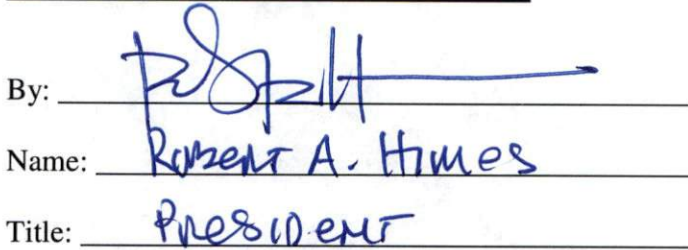 By:
Name: Robert A. Himes
Title: President